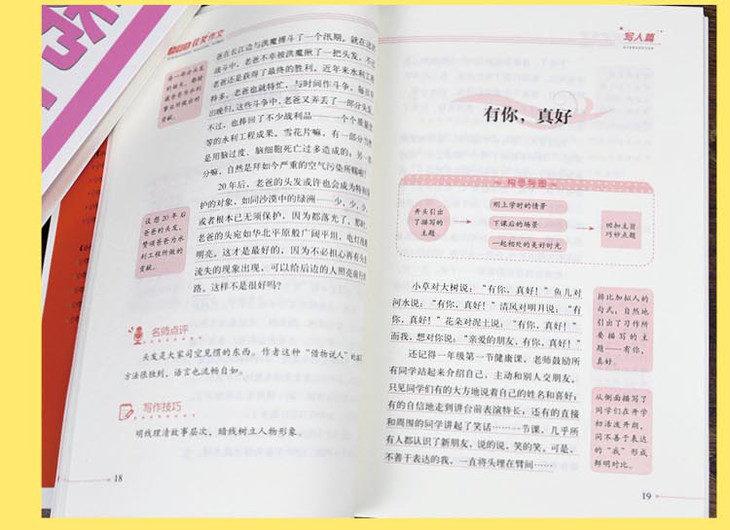 获奖作文
爸在长江边与洪魔搏斗了一个汛期。就在这场
战斗中，老爸不幸被洪魔揪了一把头发，不过
老爸还是获得了最终的胜利。近年来水利工程
特多，老爸也就特忙，与时间作斗争，每日早
出晚归。这些斗争中，老爸又弄丢了一部分头发
不过，也捧回了不少战利品——一个个质量优
等的水利工程成果。雪花片嘛，有一部分当然
是用脑过度、脑细胞死亡过多造成的；另一部
分嘛，自然是拜如今严重的空气污染所赐啦！
20年后，老爸的头发或许也会成为特别保
护的对象，如同沙漠中的绿洲——少，少，少
或者根本已无须保护，因为都落光了。那时，
老爸的头宛如华北平原般广阔平坦，电灯泡般
明亮。这才是最好的，因为不必担心再有水土
流失的现象出现，可以给后边的人照亮前行的
路，这样不是很好吗？
设想20年后
爸爸的头发，
赞颂爸爸为水
利工程所做的
贡献。
名师点评
头发是大家司空见惯的东西，作者这种“借物说人”的
方法很独到，语言也流畅自如。
写作技巧
明线理清故事层次，暗线树立人物形象。
18
写人篇
有你，真好
构思导图
开头引出
了描写的
主题
刚上学时的情景
下课后的场景
一起相处的美好时光
呼扣主旨
巧妙点题
小草对大树说：“有你，真好！”鱼儿对
河水说：“有你，真好！”清风对明月说：“有
你，真好！”花朵对泥土说：“有你，真好！”
而我，想对你说：“亲爱的朋友，有你，真好！”
还记得一年级第一节健康课，老师鼓励所
有同学站起来介绍自己，主动和别人交朋友。
只见同学们有的大方地说着自己的姓名和喜好；
有的自信地走到讲台前表演特长；还有的直接
和周围的同学讲起了笑话……一节课，几乎所
有人都认识了新朋友，说的说，笑的笑。可是，
不善于表达的我，一直将头埋在臂间……
排比加拟人的
句式，自然地
引出了习作所
要描写的主
题——有你，
真好。
从侧面描写了
同学们在开学
初活泼开朗，
同不善于表达
的“我”形成
鲜明对比。
19